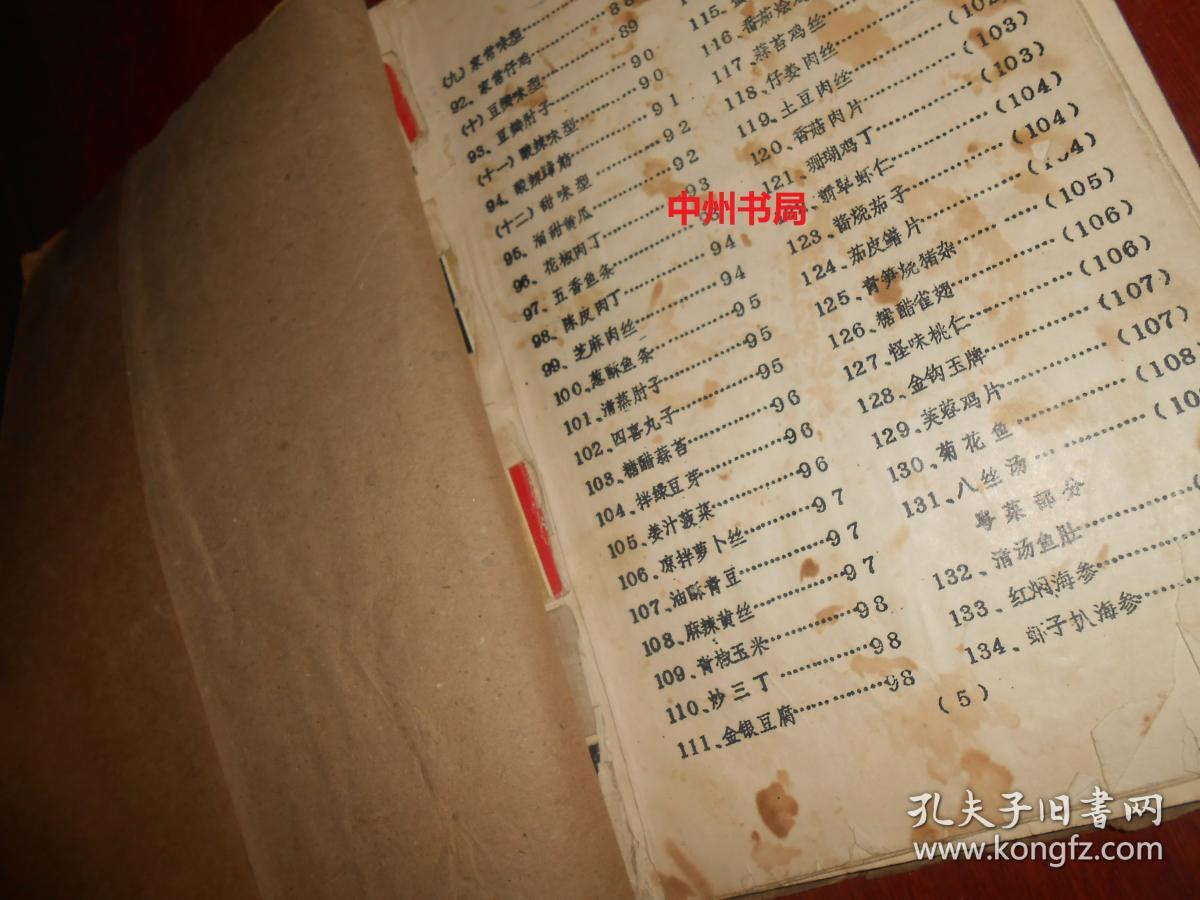 (九)家常味型……88
92、家常仔鸡……89
(十)豆瓣味型……90
93、豆瓣肘子……90
(十一)酸辣味型……91
94、酸辣蹄筋……92
(十二)甜味型……92
95、溜甜黄瓜……93
96、花椒肉丁
97、五香鱼条……94
98、陈皮肉丁……94
99、芝麻肉丝……95
100、葱酥鱼条……95
101、清蒸肘子……95
102、四喜丸子……96
103、糖醋蒜苔……96
104、拌绿豆芽……96
105、姜汁菠菜……97
106、凉拌萝卜丝……97
107、油酥青豆……97
108、麻辣黄丝……98
109、青椒玉米……98
110、炒三丁……98
111、金银豆腐……98
115、
116、番茄烩
117、蒜苔鸡丝……(102
118、仔姜肉丝……(103)
119、土豆肉丝……(103)
120、香菇肉片……(104)
121、珊瑚鸡丁……(104)
翡翠虾仁……(104)
123、酱烧茄子……(105)
124、茄皮鳝片……(106)
125、青笋烧猪杂……(106)
126、糖醋雀翅……(107)
127、怪味桃仁……(107)
128、金钩玉牌……(108)
129、芙蓉鸡片……(10
130、菊花鱼
131、八丝汤
粤菜部分
132、清汤鱼肚
133、红焖海参
134、虾子扒海参
(5)
中州书局
孔夫子旧书网
www.kongfz.com